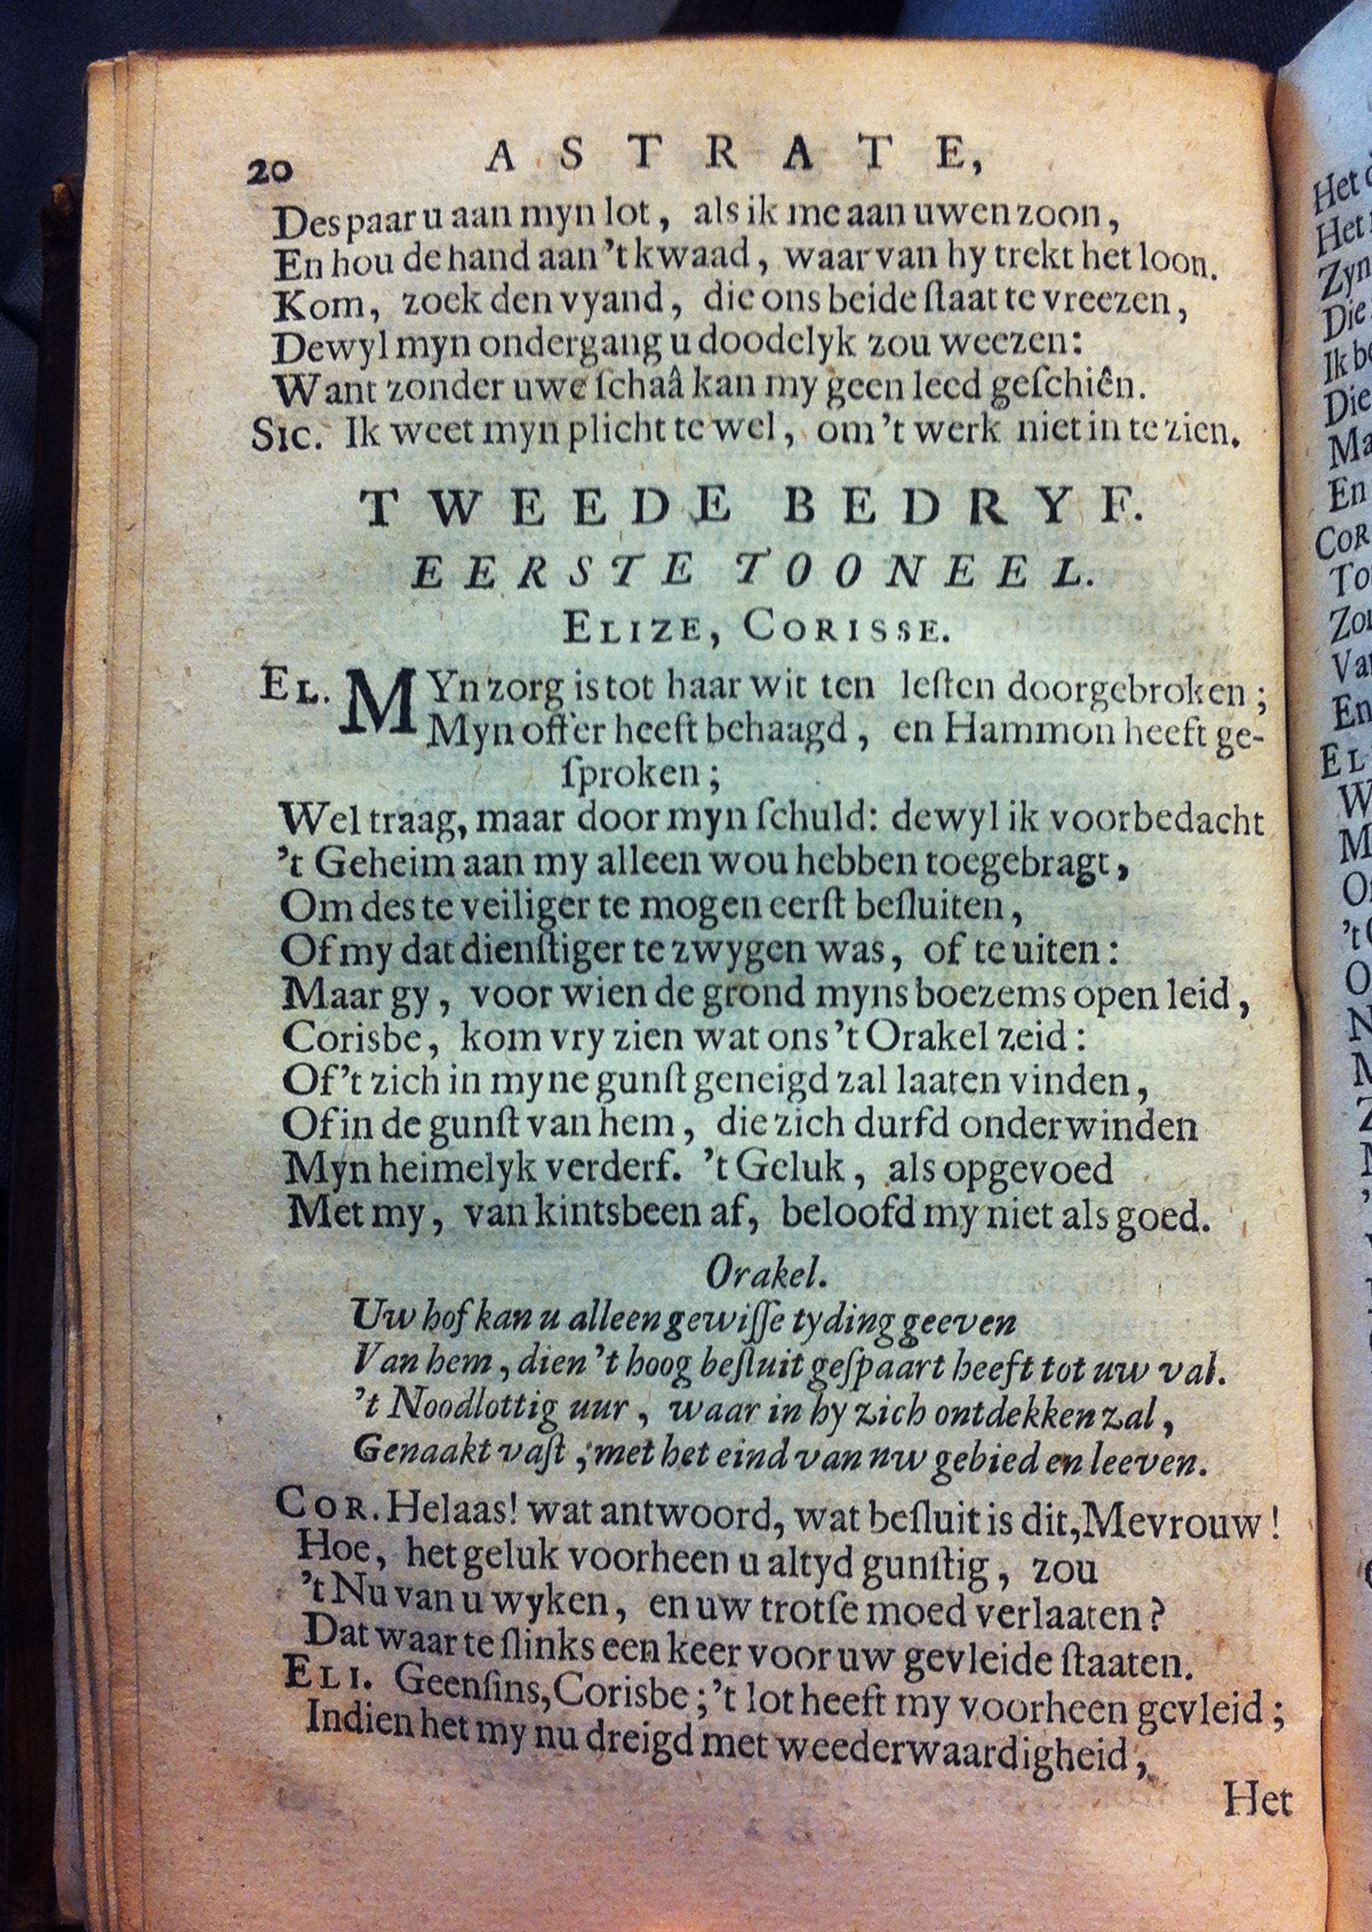 20 ASTRATE,
Des paar u aan myn lot, als ik me aan uwen zoon,
En hou de hand aan 't kwaad, waar van hy trekt het loon.
Kom, zoek den vyand, die ons beide ſtaat te vreezen,
Dewyl myn ondergang u doodelyk zou weezen:
Want zonder uwe ſchaâ kan my geen leed geſchiên.
SIC. Ik weet myn plicht te wel, om 't werk niet in te zien.
TWEEDE BEDRYF.
EERSTE TOONEEL.
ELIZE, CORISSE.
EL. MYn zorg is tot haar wit ten leſten doorgebroken;
Myn offer heeft behaagd, en Hammon heeft ge-
ſproken;
Wel traag, maar door myn ſchuld: dewyl ik voorbedacht
't Geheim aan my alleen wou hebben toegebragt,
Om des te veiliger te mogen eerſt beſluiten,
Of my dat dienſtiger te zwygen was, of te uiten:
Maar gy, voor wien de grond myns boezems open leid,
Corisbe, kom vry zien wat ons 't Orakel zeid:
Of 't zich in myne gunſt geneigd zal laaten vinden,
Of in de gunſt van hem, die zich durfd onderwinden
Myn heimelyk verderf. 't Geluk, als opgevoed
Met my, van kintsbeen af, beloofd my niet als goed.
Orakel.
Uw hof kan u alleen gewiſſe tyding geeven
Van hem, dien 't hoog beſluit geſpaart heeft tot uw val.
't Noodlottig uur, waar in hy zich ontdekken zal,
Genaakt vaſt, met het eind van nw gebied en leeven.
COR. Helaas! wat antwoord, wat beſluit is dit, Mevrouw!
Hoe, het geluk voorheen u altyd gunſtig, zou
't Nu van u wyken, en uw trotſe moed verlaaten?
Dat waar te ſlinks een keer voor uw gevleide ſtaaten.
ELI. Geenſins, Corisbe; 't lot heeft my voorheen gevleid;
Indien het my nu dreigd met weederwaardigheid,
Het
Het
Het
Zyn
Die
Ik
Die
Ma
En
COR
To
Zo
Va
En
EL
W
M
O
't
O
N
M
Z